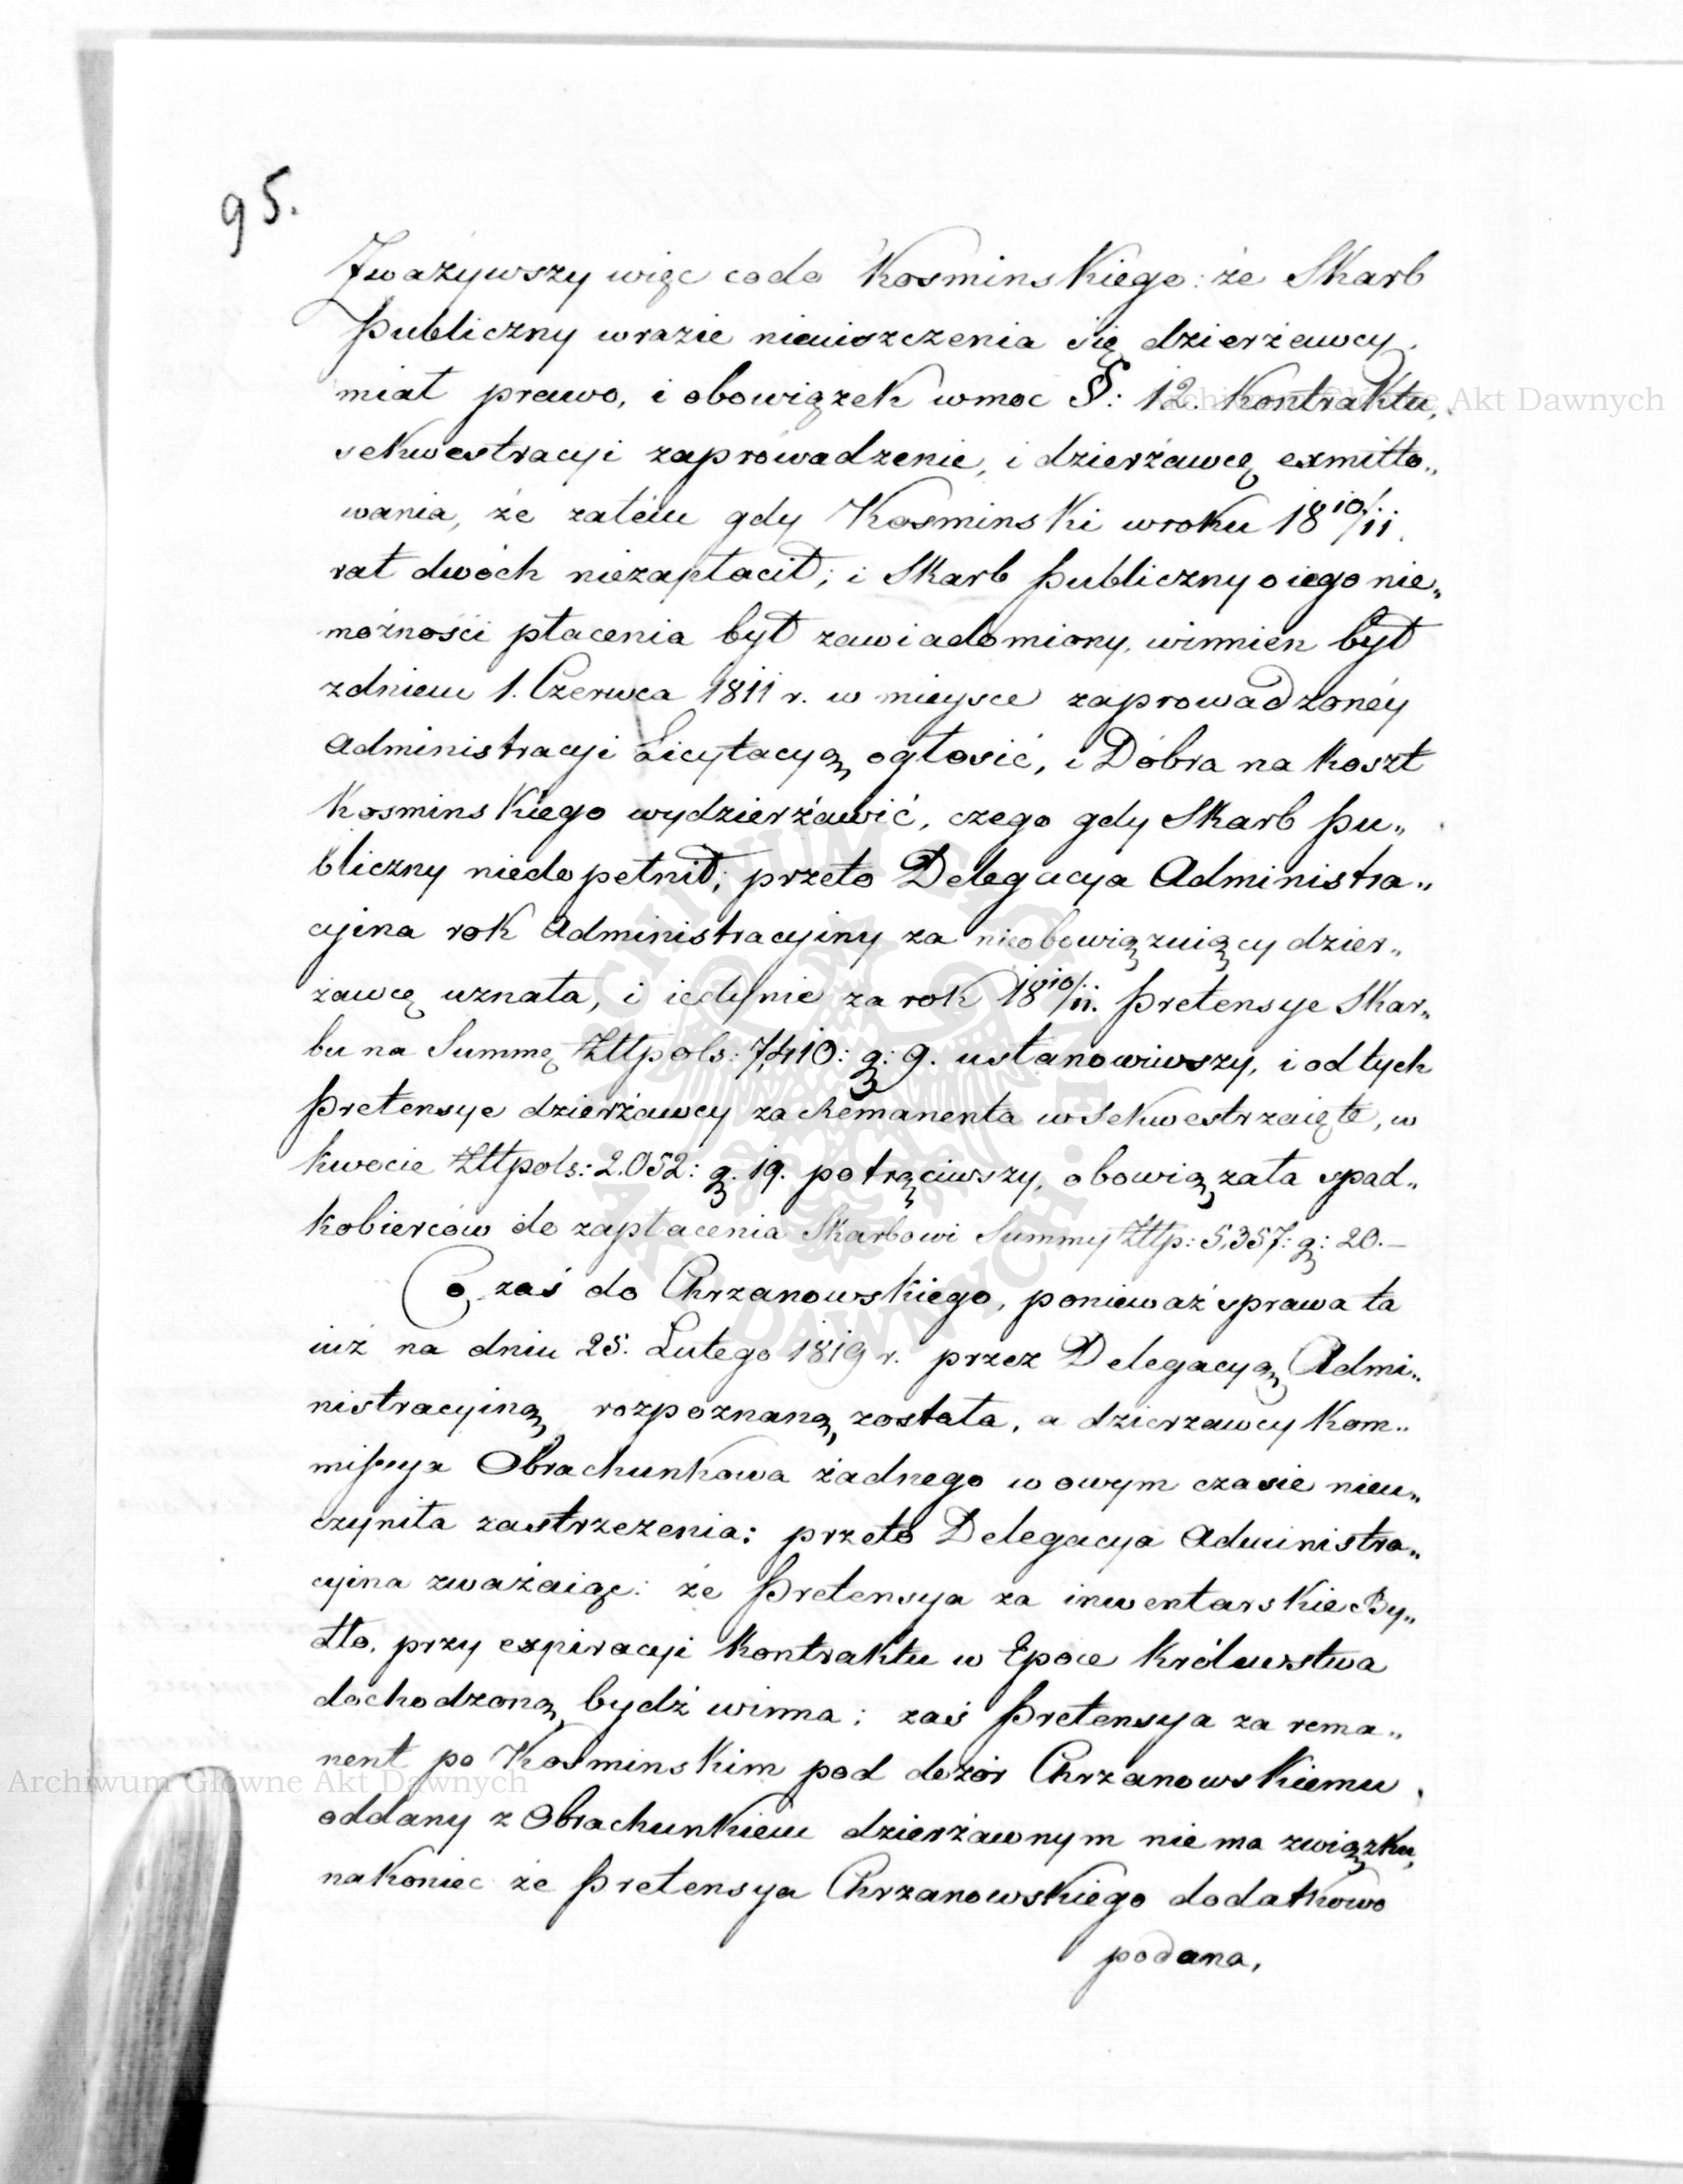 95.
Zważywszy więc codo Kosminskiego: że Skarb
Publiczny wrazie nieuiszczenia się dzierżawcy.
miał prawo, i obowiązek wmoc §: 12. Kontraktu,
sekwestracyi zaprowadzenie, i dzierżawcę exmitto„
wania, że zatém gdy Kosminski wroku 18 10/11.
rat dwóch niezapłacił; i Skarb Publiczny o iego nie„
możności płacenia był zawiadomiony, winnien był
zdniem 1. Czerwca 1811 r. w mieysce zaprowadzonéy
Administracyi Licytacyą ogłosić, i Dobra na koszt
Kosminskiego wydzierżawić, czego gdy Skarb Pu„
bliczny niedopełnił; przeto Delegacya Administra„
cyina rok Administracyiny za nieobowiązuiący dzier„
żawcę uznała, i iedynie za rok 18 10/11. Pretensye Skar„
bu na Summę Złłpols: 7,410: g: 9. ustanowiwszy, i od tych
Pretensye dzierżawcy za Remanenta w Sekwestrzaięte, w
kwocie Złłpols: 2.052: g. 19. potrąciwszy, obowiązała spad„
kobierców do zapłacenia Skarbowi Summy Złłp: 5,357: g: 20.—
Co zaś do Chrzanowskiego, ponieważ sprawa ta
iuż na dniu 25. Lutego 1819 r. przez Delegacyą Admi„
nistracyiną rozpoznaną została, a dzierzawcy Kom„
missya Obrachunkowa żadnego w owym czasie nieu„
czyniła zastrzezenia: przeto Delegacya Administra„
cyina zważaiąc: że Pretensya za inwentarskie By„
dło, przy expiracyi Kontraktu w Epoce Królewstwa
dochodzoną bydź winna; zaś Pretensya za rema„
nent po Kosminskim pod dozór Chrzanowskiemu
oddany z Obrachunkiem dzierżawnym nie ma związku,
nakoniec że Pretensya Chrzanowskiego dodatkowo
podana,
Archiwum Główne Akt Dawnych
Archiwum Główne Akt Dawnych